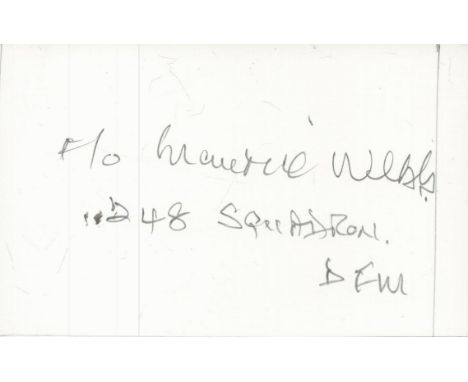 F/O Maurice Webb.
248 SQUADRON.
DFM